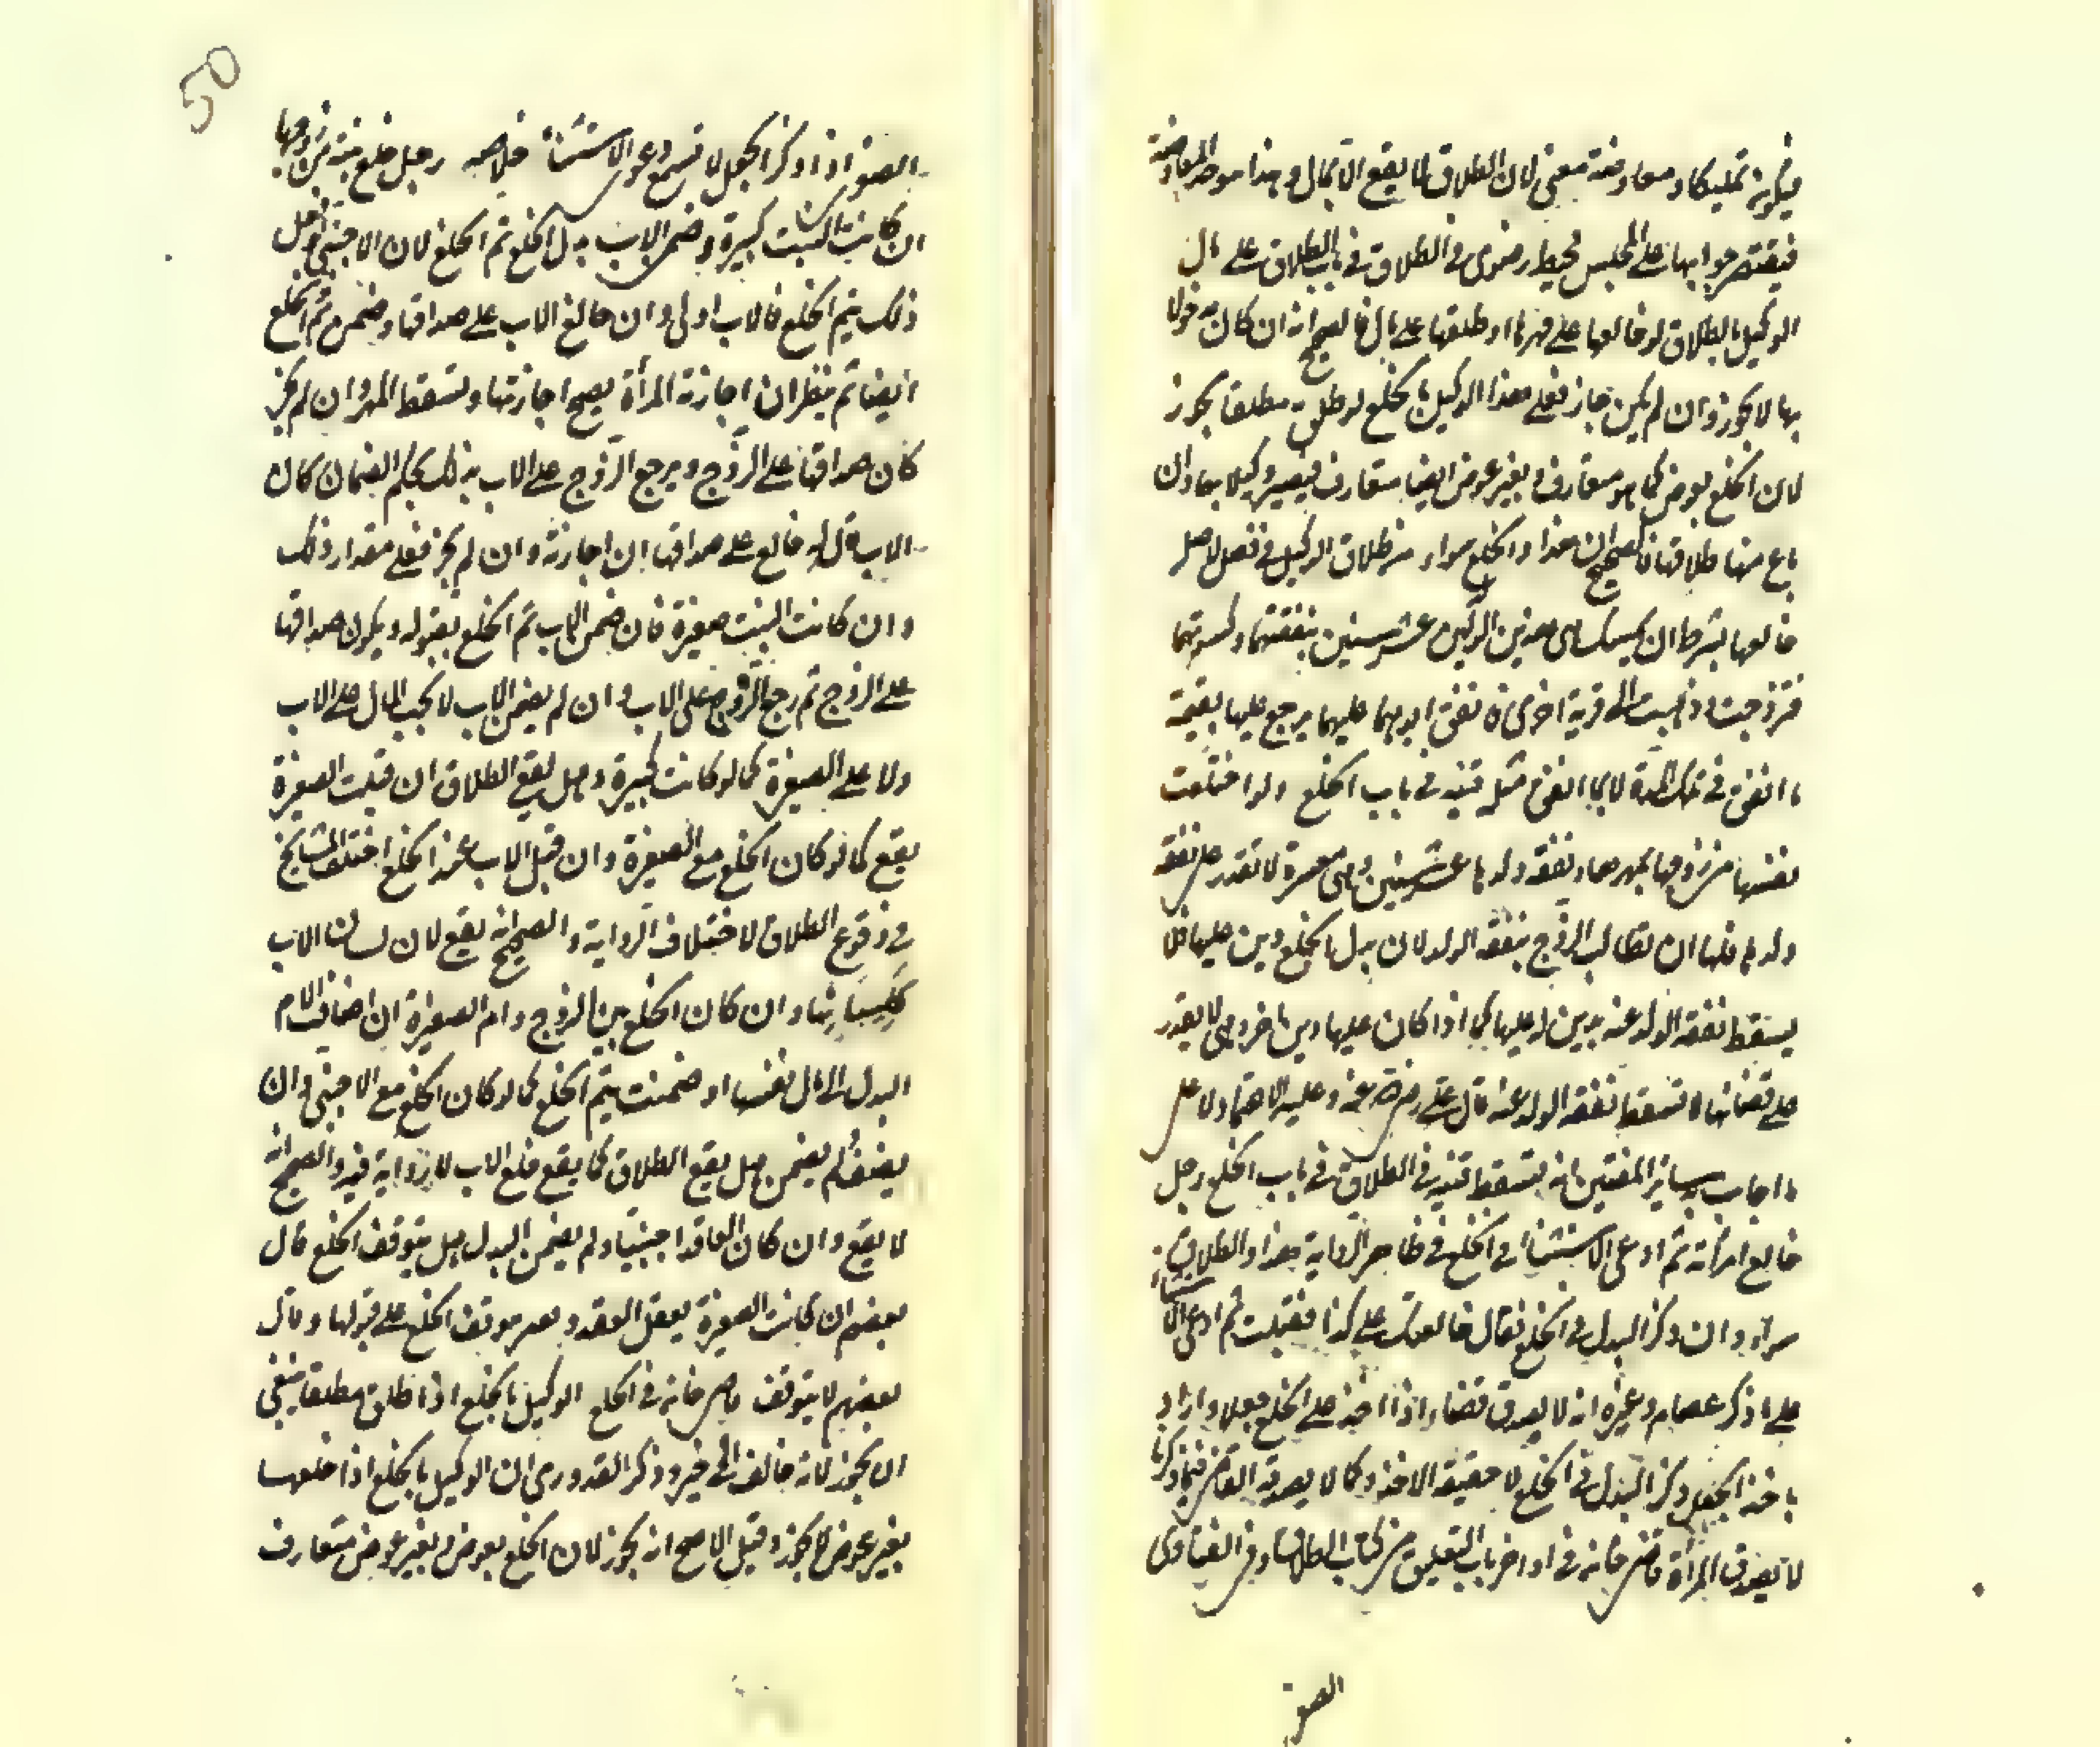 فيكون تمليكا ومعاوضة معنى لان الطلاق لا يقع الا بمال وهذا هو حد المعاوضة
فيقتصر جوابها على المجلس محيط رضوى فى الطلاق فى باب الطلاق على مال
الوكيل بالطلاق لو خالعها على مهرها او طلقها على مال فالصحيح انه ان كان مدخولا
بها لا يجوز وان لم يكن جاز فعلى هذا الوكيل بالخلع لو طلق مطلقا يجوز
لان الخلع بعوض كما هو متعارف وبغير عوض ايضا متعارف فيصير وكيلا بهما وان
باع منها طلاقها فالصحيح ان هذا والخلع سواء من طلاق الوكيل فى فصل
خالعها بشرط ان يمسك هذين الولدين عشر سنين بنفقتهما وكسوتهما
فتزوجت وذهبت الى قرية اخرى فانفق ابوهما عليهما يرجع عليها بقيمة
ما انفق فى تلك المدة لا بما انفق مثله قنيه فى باب الخلع ولو اختلعت
نفسها من زوجها بمهرها ونفقة ولدها عشر سنين وهى معسرة لا تقدر على نفقة
ولدها فلها ان تطالب الزوج بنفقة الولد لان بدل الخلع دين عليها فلا
يسقط نفقة الولد عنه بدين له عليها كما اذا كان عليها دين اخر وهى لا يقدر
على قضائها لا تسقط نفقة الولد عنه قال على رضى الله عنه وعليه الاعتماد لا على
ما اجاب سائر المفتين انه تسقط قنيه فى الطلاق فى باب الخلع رجل
خالع امرأته ثم ادعى الاستثناء فى الخلع فى ظاهر الرواية هذا والطلاق
سواء وان ذكر البدل فى الخلع فقال خالعتك على كذا فقبلت ثم ادعى الاستثناء
على ما ذكر عصام وغيره انه لا يصدق قضاء اذا اخذ على الخلع جعلا واراد
باخذ الجعل ذكر البدل فى الخلع لا حقيقة الاخذ وكما لا يصدقه القاضى فيما ذكرنا
لا تصدق المرأة قاضى خان فى اواخر باب التعليق من كتاب الطلاق وفى الفتاوى
الصو
50
الصو اذا ذكر الجعل لا تسمع دعوى الاستثناء خلاصه رجل خلع بنته من زوجها
ان كانت البنت كبيرة وضمن الاب بدل الخلع تم الخلع لان الاجنبى لو فعل
ذلك يتم الخلع فالاب اولى وان خالع الاب على صداقها وضمن تم الخلع
ايضا ثم ينظر ان اجازت المرأة يصح اجازتها ويسقط المهر وان لم تجز
كان صداقها على الزوج ويرجع الزوج على الاب بذلك بحكم الضمان كان
الاب قال له خالع على صداقها ان اجازته وان لم تجز فعلى مقدار ذلك
وان كانت البنت صغيرة فان ضمن الاب تم الخلع بقبوله ويكون صداقها
على الزوج ثم رجع الزوج على الاب وان لم يضمن الاب لا يجب المال على الاب
ولا على الصغيرة كما لو كانت كبيرة وهل يقع الطلاق ان قبلت الصغيرة
يقع كما لو كان الخلع مع الصغيرة وان قبل الاب عند الخلع اختلف المشايخ
فى وقوع الطلاق لاختلاف الرواية والصحيح انه يقع لان لسان الاب
كلسانها وان كان الخلع بين الزوج وام الصغيرة ان اضافت الام
البدل الى مال نفسها او ضمنت يتم الخلع كما لو كان الخلع مع الاجنبى وان
يضف لم يضمن هل يقع الطلاق كما يقع خلع الاب لا رواية فيه والصحيح انه
لا يقع وان كان العاقد اجنبيا ولم يضمن البدل هل يتوقف الخلع قال
بعضهم ان كانت الصغيرة يعقل العقد و يتوقف الخلع على قبولها وقال
بعضهم لا يتوقف قاضى خان فى الخلع الوكيل بالخلع اذا طلق مطلقا ينبغى
ان يجوز لانه خالف الى خير وذكر القدورى ان الوكيل بالخلع اذا خلعها
بغير عوض لا يجوز وقيل الاصح انه يجوز لان الخلع بعوض وبغير عوض متعارف